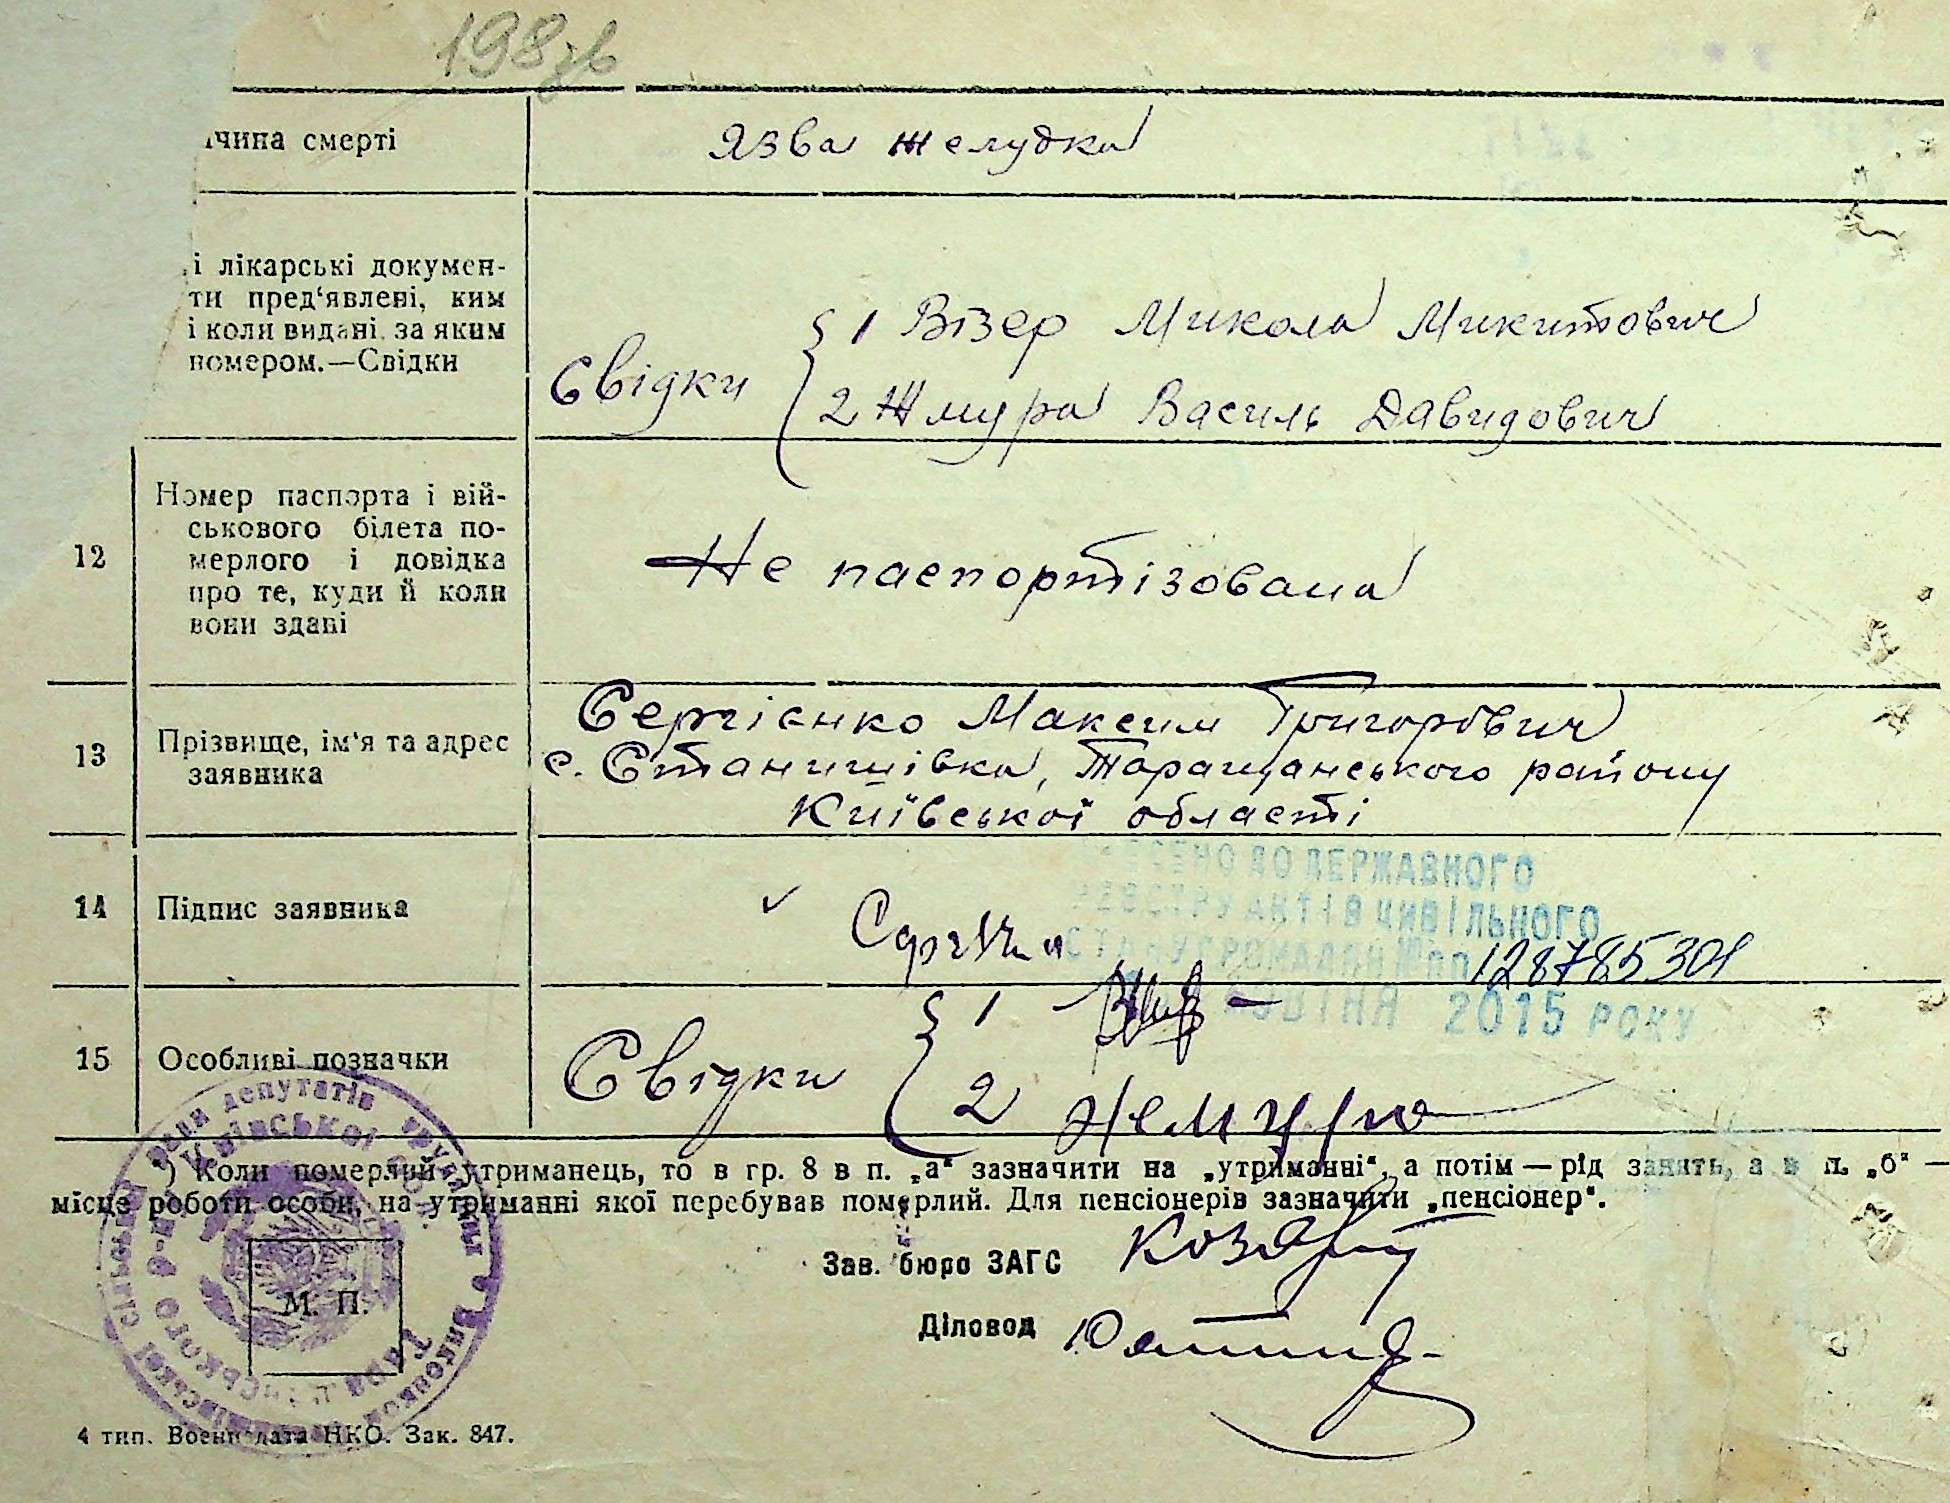 198зв
ичина смерті
Язва желудка
і лікарські докумен-
ти пред'явлені, ким
і коли видані за яким
номером.—Свідки
Свідки
1 Візер Микола Микитович
2 Жмура Василь Давидович
12
Номер паспорта і вій-
ськового білета по-
мерлого і довідка
про те, куди й коли
вони здані
Не паспортізована
13
Прізвище, ім'я та адрес
заявника
Сергієнко Максим Григорович
с. Станишівка, Таращанського району
Київської області
14
Підпис заявника
ЕНО ДО ДЕРЖАВНОГО
РЕЄСТРУ АКТІВ ЦИВІЛЬНОГО
СТАНУ ГРОМАДЯН № 128785301
2015 РОКУ
15
Особливі позначки
Свідки
1
2 Жемура
*) Коли померлий утриманець, то в гр. 8 в п. „а“ зазначити на „утриманні“, а потім — рід занять, а в п. „б“ —
місце роботи особи, на утриманні якої перебував померлий. Для пенсіонерів зазначити „пенсіонер“.
Зав. бюро ЗАГС
Діловод
М. П.
ради депутатів трудящих
Київської
4 тип. Воениздата НКО. Зак. 847.